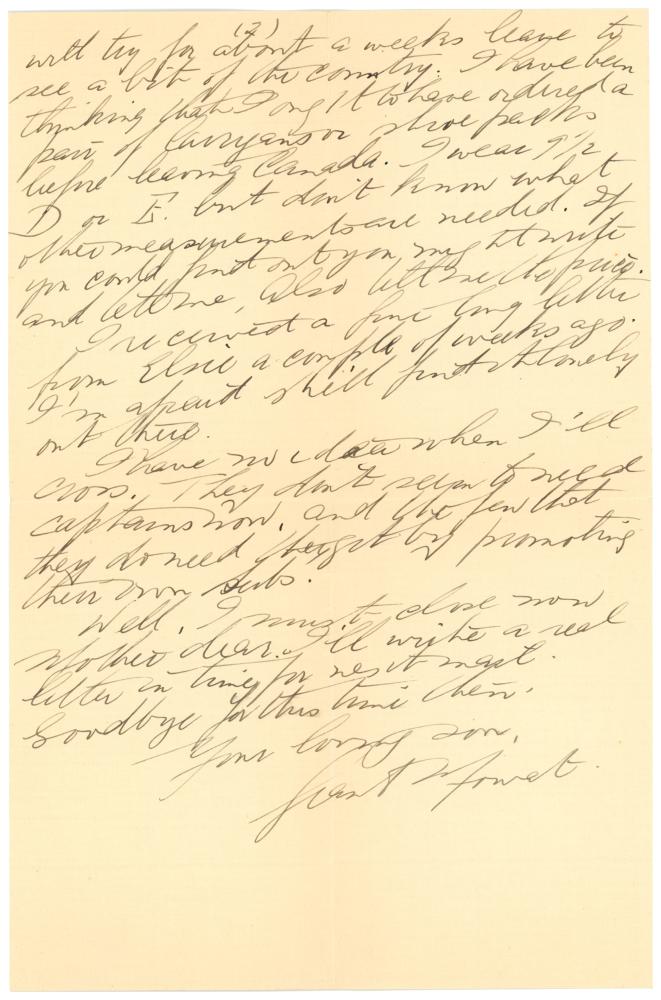 (2)
will try for about a weeks leave to
see a bit of the country. I have been
thinking that I ought to have ordered a
pair of larrygans or shoe packs
before leaving Canada. I wear 9 1/2
D or E. but don't know what
other measurements are needed. If
you could find out you might write
and let me, Also let me the price.
I received a fine long letter
from Elsie a couple of weeks ago.
I'm afraid she'll find it lonely
out there.
I have no idea when I'll
cross. They don't seem to need
captains now, and the few that
they do need they get by promoting
their own subs.
Well, I must close now
Mother dear. I'll write a real
letter in time for next mail.
Goodbye for this time then.
Your loving son,
Grant Mowat.